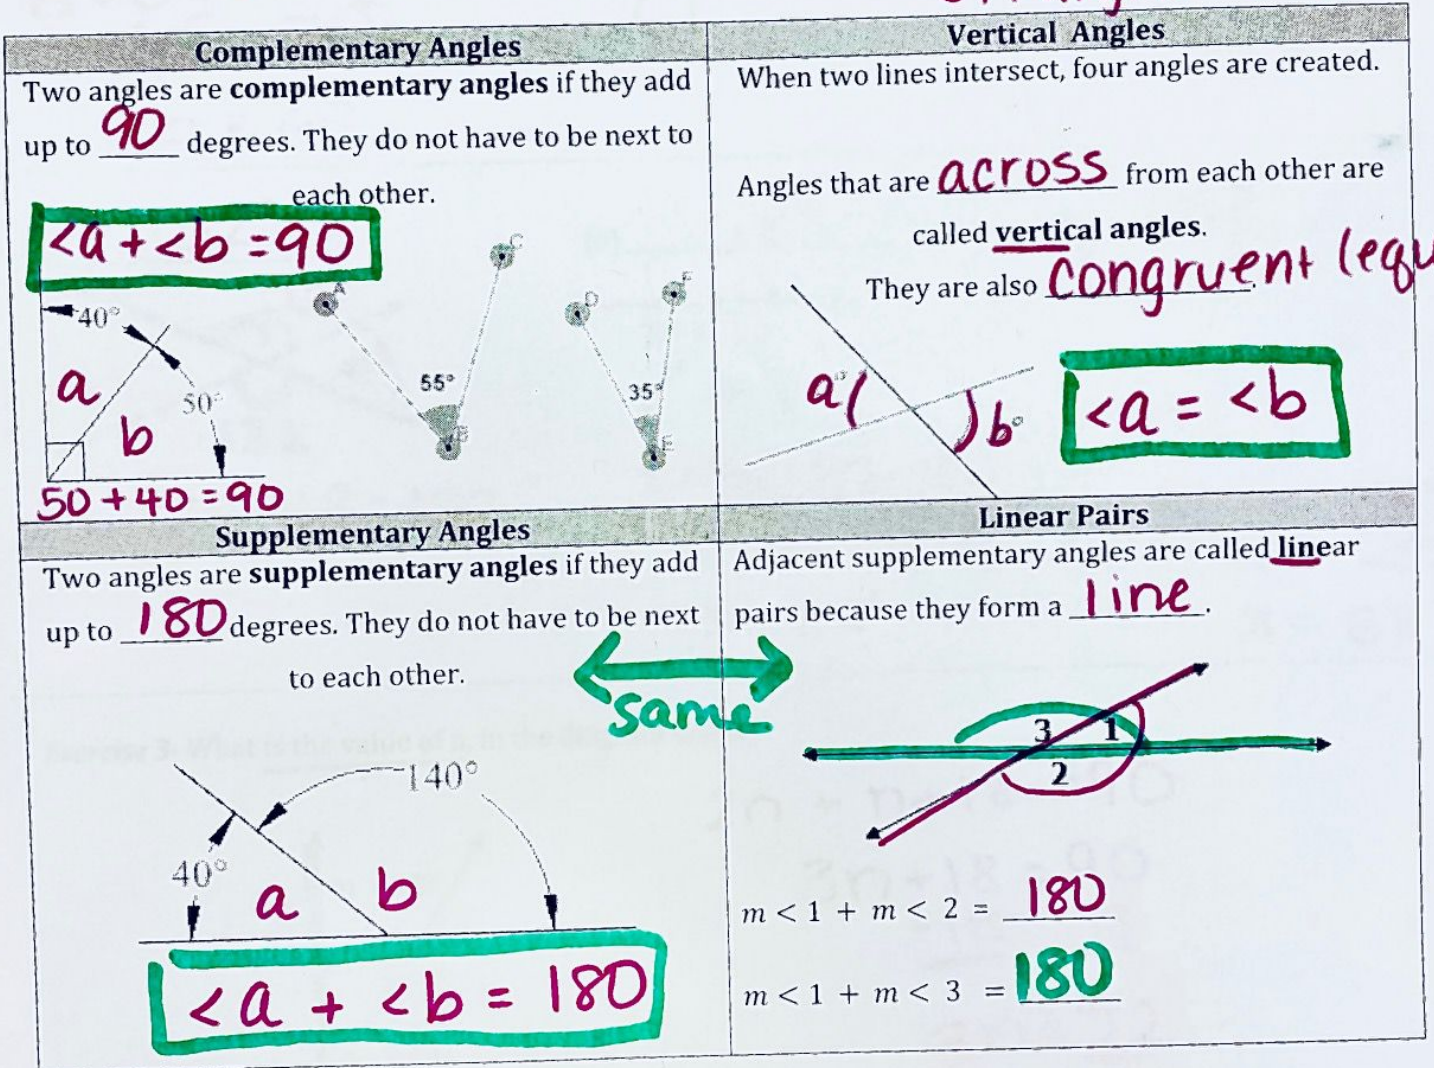 Complementary Angles
Two angles are complementary angles if they add
up to 90 degrees. They do not have to be next to
each other.
<a + <b = 90
40°
a
b
50°
50 + 40 = 90
A
C
55°
B
D
F
35°
E
Vertical Angles
When two lines intersect, four angles are created.
Angles that are across from each other are
called vertical angles.
They are also congruent
a
b°
<a = <b
Supplementary Angles
Two angles are supplementary angles if they add
up to 180 degrees. They do not have to be next
to each other.
same
140°
40°
a
b
<a + <b = 180
Linear Pairs
Adjacent supplementary angles are called linear
pairs because they form a line.
3
1
2
m < 1 + m < 2 = 180
m < 1 + m < 3 = 180